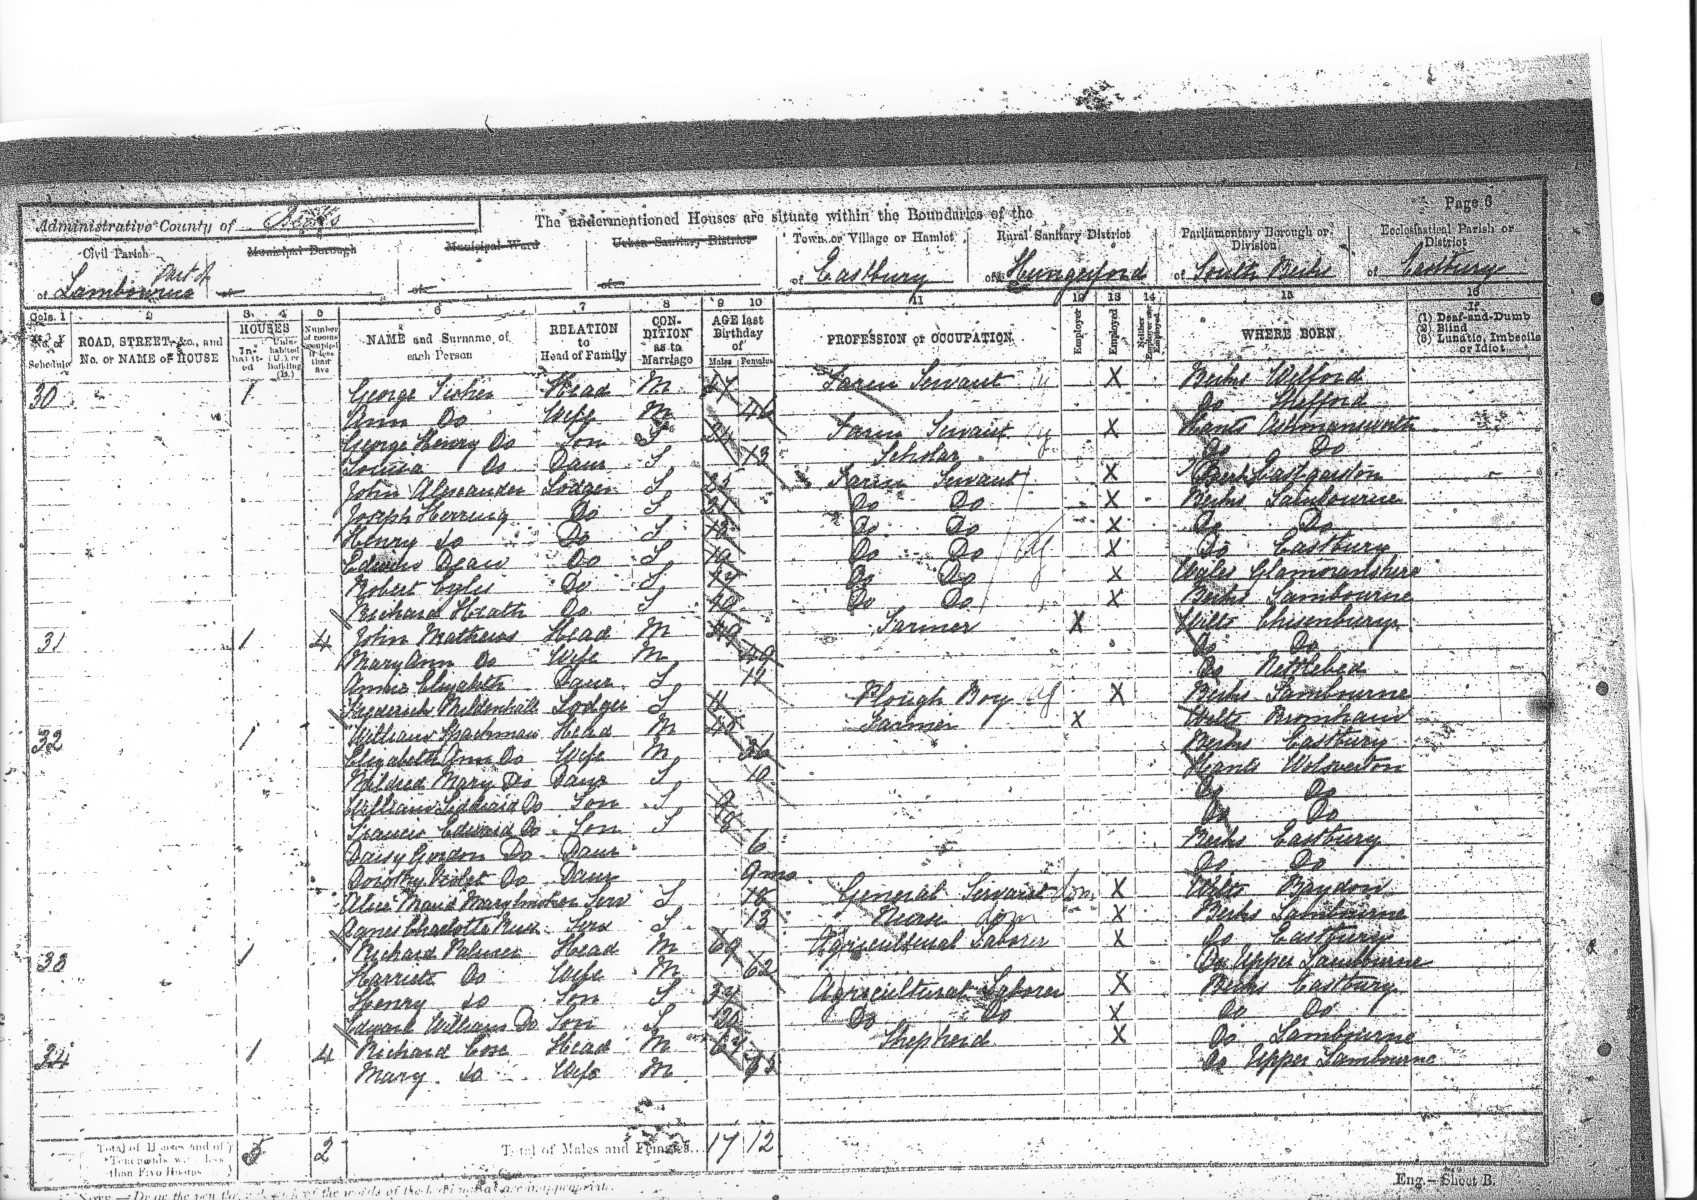 Page 6
Administrative County of Berks The undermentioned Houses are situate within the Boundaries of the
Civil Parish Municipal Borough Municipal Ward Urban Sanitary District Town or Village or Hamlet Rural Sanitary District Parliamentary Borough or Division Ecclesiastical Parish or District
of Lambourne Part of of of of of Eastbury of Hungerford of South Berks of Eastbury
Cols. 1 2 3 4 5 6 7 8 9 10 11 12 13 14 15 16
No. of Schedule ROAD, STREET, &c., and No. or NAME of HOUSE HOUSES Inhabited Uninhabited (U.) or Building (B.) Number of rooms occupied if less than five NAME and Surname of each Person RELATION to Head of Family CONDITION as to Marriage AGE last Birthday of Males Females PROFESSION or OCCUPATION Employer Employed Neither Employer nor Employed WHERE BORN If (1) Deaf-and-Dumb (2) Blind (3) Lunatic, Imbecile or Idiot
30 1 George Fisher Head M 47 Farm Servant X Berks Welford
Ann Do Wife M 46 Do Shefford
George Henry Do Son S 24 Farm Servant X Hants Ashmansworth
Louisa Do Daur S 13 Scholar Do Do
John Alexander Lodger S 22 Farm Servant X Berks Eastgarston
Joseph Herring Do S 21 Do Do X Berks Lambourne
Henry Do Do S 18 Do Do X Do Do
Edwin Dean Do S 19 Do Do Ag X Do Eastbury
Robert Eyles Do S Do Do X Wales Glamoranshire
Richard Heath Do S Do Do X Berks Lambourne
31 1 4 John Mathews Head M 49 Farmer X Wilts Chisenbury
Mary Ann Do Wife M 49 Do Do
Annie Elizabeth Daur S 12 Do Nettlebed
Frederick Mildenhall Lodger S Plough Boy Ag X Berks Lambourne
32 1 William Spackman Head M 40 Farmer X Wilts Bromham
Elizabeth Ann Do Wife M 36 Berks Eastbury
Mildred Mary Do Daur S 10 Hants Wolverton
William Do Son S 9 Do Do
Francis Edward Do Son S 8 Do Do
Daisy Gordon Do Daur 6 Berks Eastbury
Dorothy Violet Do Daur 9mo Do Do
Alice Maud Serv S 16 General Servant Dom X Wilts Baydon
Agnes Charlotte Serv S 13 Nurse Dom X Berks Lambourne
33 1 Richard Palmer Head M 69 Agricultural Laborer X Do Eastbury
Harriett Do Wife M 62 Do Upper Lambourne
Henry Do Son S 34 Agricultural Laborer X Berks Eastbury
Edward William Do Son S 20 Do Do X Do Do
34 1 4 Richard Cox Head M 64 Shepherd X Do Lambourne
Mary Do Wife M Do Upper Lambourne
Total of Houses and of Tenements with less than Five Rooms 5 2 Total of Males and Females... 17 12
Eng.—Sheet B.